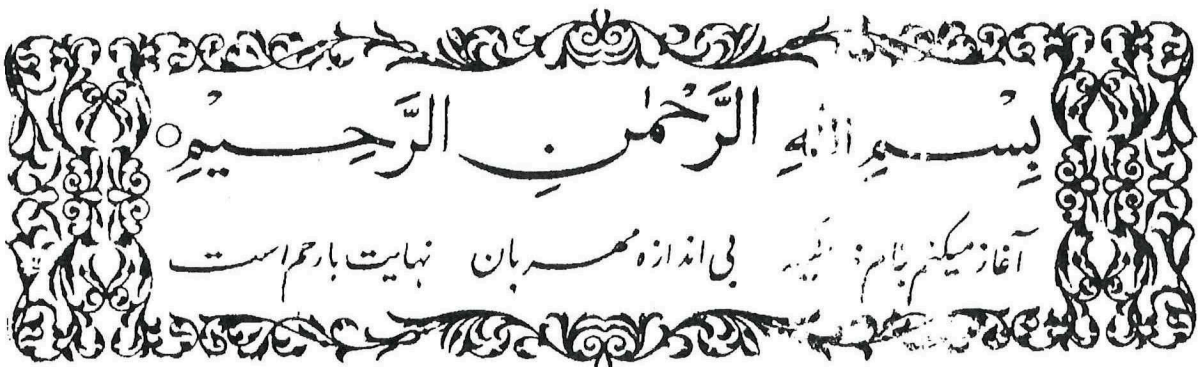 بِسْــمِ اللهِ الرَّحْمٰنِ الرَّحِــيْمِ ○
آغاز میکنم بنام بی اندازه مهربان نهایت بارحم است